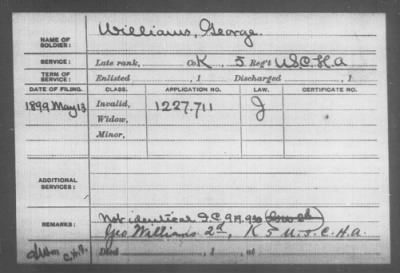 NAME OF SOLDIER: Williams, George.
SERVICE: Late rank, Co. K, 5 Reg't U.S.C.H.A
TERM OF SERVICE: Enlisted , 1 Discharged , 1
DATE OF FILING. CLASS. APPLICATION NO. LAW. CERTIFICATE NO.
1899 May 13 Invalid, 1227.711 J
Widow,
Minor,
ADDITIONAL SERVICES:
REMARKS: Not identical I.C.
Geo Williams 2d, K 5 U.S.C.H.A.
Died , 1 , at